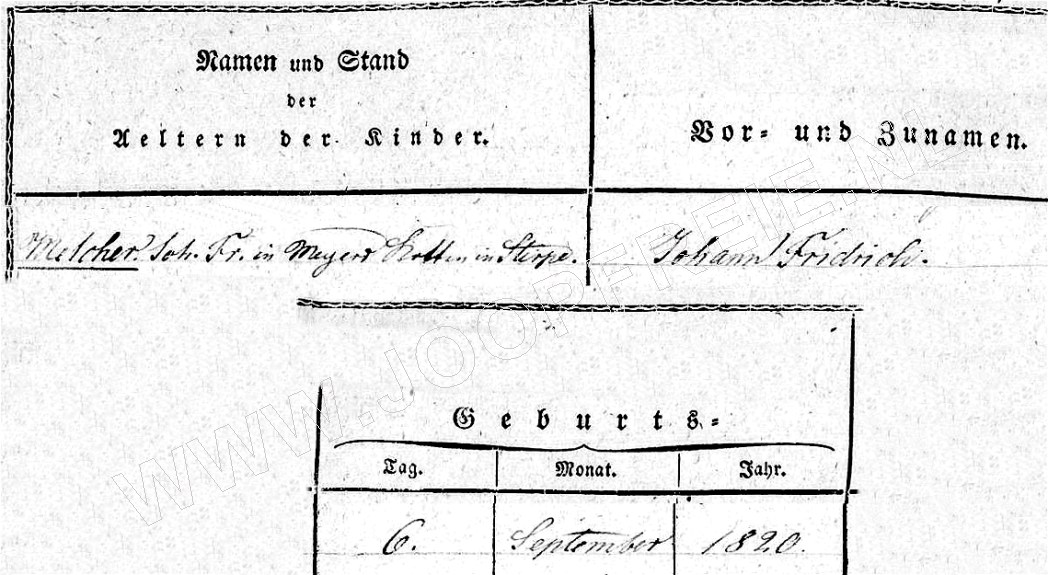 Namen und Stand
der
Aeltern der Kinder.
Vor- und Zunamen.
Melcher. Joh. Fr. in Meyers Kotten in Sterpe.
Johann Fridrich.
Geburts-
Tag.
Monat.
Jahr.
6.
September
1820.
WWW.JOOPFEIE.NL